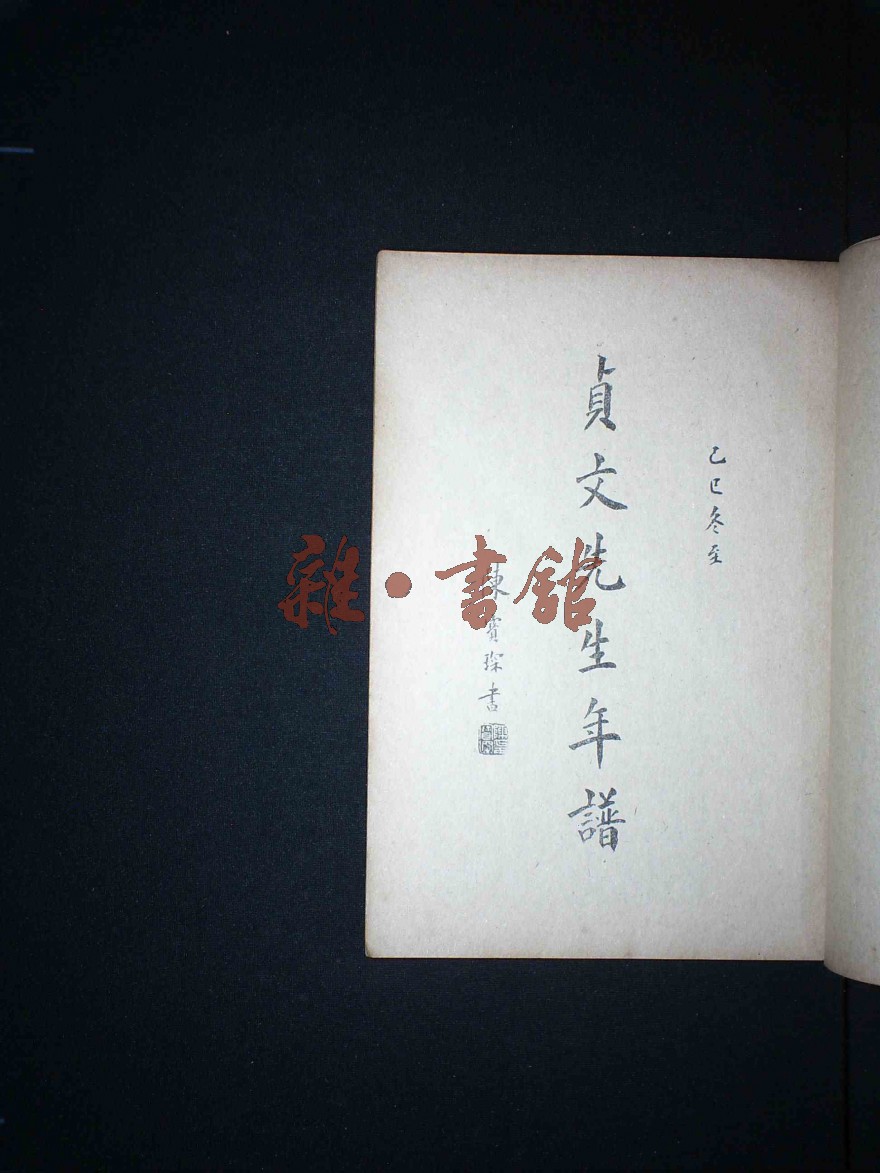 己巳冬至
貞文先生年譜
陳寶琛書
雜·書館